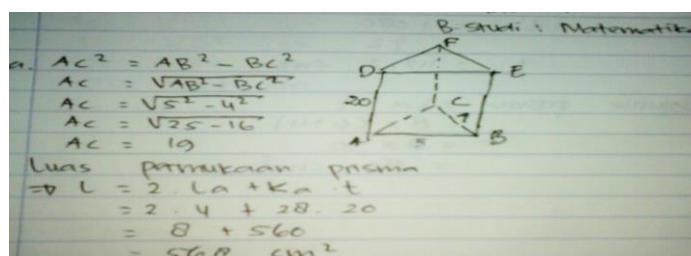 B. Studi : Matematika
a. AC² = AB² - BC²
AC = √AB² - BC²
AC = √5² - 4²
AC = √25 - 16
AC = 19
F
D
E
20
C
4
A
B
5
Luas permukaan prisma
⇒ L = 2 . La + Ka . t
= 2 . 4 + 28 . 20
= 8 + 560
= 568 cm²